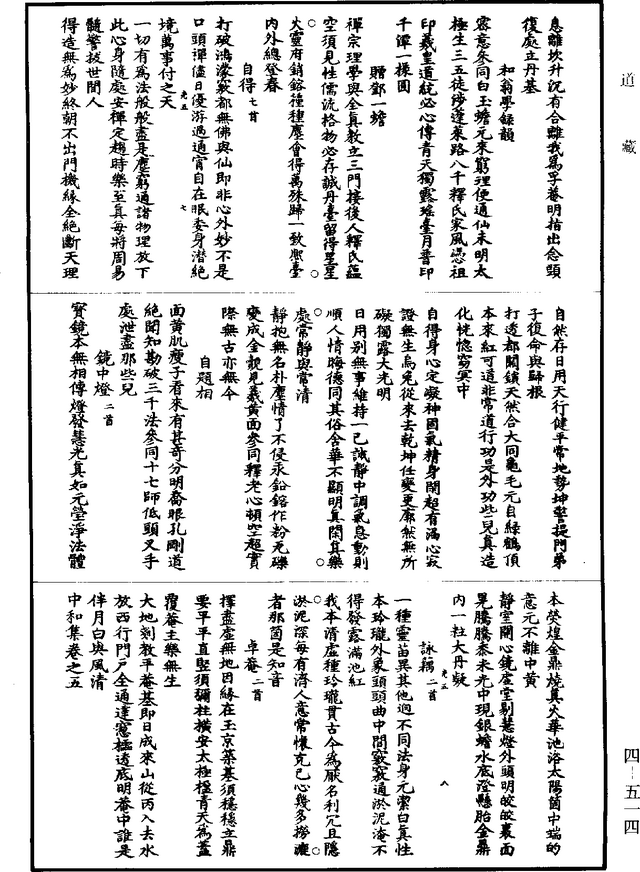 道藏
息離坎升沉有合離我為孚菴明指出念頭
復處立丹基
和翁學録韻
密意參同白玉蟾元來窮理便通仙未明太
極生三五徒涉蓬萊路八千釋氏家風憑祖
印羲皇道統必心傳青天獨露瑤臺月普印
千潭一樣圓
贈鄧一蟾
禪宗理學與全真教立三門接後人釋氏蘊
空須見性儒流格物必存誠丹臺留得星星
火靈府銷鎔種種塵會得萬殊歸一致熙臺
內外總登春
自得七首
打破鴻濛竅都無佛與仙即非心外妙不是
口頭禪儘日優游過通宵自在眠委身潛絶
境萬事付之天
一切有為法般般盡是塵窮通諳物理放下
此心身隨處安禪定趨時樂至真每將周易
髓警拔世間人
得造無為妙終朝不出門機緣全絶斷天理
自然存日用天行健平常地勢坤警提門弟
子復命與歸根
打透都關鎖天然合大同龜毛元自緑鶴頂
本來紅可道非常道行功是外功些兒真造
化恍惚窈冥中
自得身心定凝神固氣精身閑超有漏心寂
證無生烏兔從來去乾坤任變更廓然無所
礙獨露大光明
日用別無事維持一己誠靜中調氣息動則
順人情晦德同其俗含華不顯明真閑真樂
處常靜與常清
靜抱無名朴塵情了不侵汞鉛鎔作粉瓦礫
變成金覿見羲黄面參同釋老心頓空超實
際無古亦無今
自題相
面黄肌瘦子看來有甚奇分明裔眼孔剛道
絶聞知勘破三千法參同十七師低頭叉手
處泄盡那些兒
鏡中燈二首
寶鏡本無相傳燈發慧光真如元瑩淨法體
本熒煌金鼎燒真火華池浴太陽箇中端的
意元不離中黄
靜室開心鏡虛堂剔慧燈外頭明皎皎裏面
晃騰騰泰米光中現銀蟾水底澄懸胎金鼎
內一粒大丹凝
詠藕二首
一種靈苗異其他迥不同法身元潔白真性
本玲瓏外象頭頭曲中間竅竅通淤泥淹不
得發露滿池紅
我本清虛種玲瓏貫古今為厭名利冗且隱
淤泥深每有濟人意常懷克己心幾多撈漉
者那箇是知音
卓菴二首
擇盡虛無地因緣在玉京築基須穩穩立鼎
要平平直竪須彌柱横安太極楹青天為蓋
覆菴主樂無生
大地剗教平菴基即日成來山從丙入去水
放西行門戸全通達窻櫺透底明菴中誰是
伴月白與風清
中和集卷之五
四—五一四